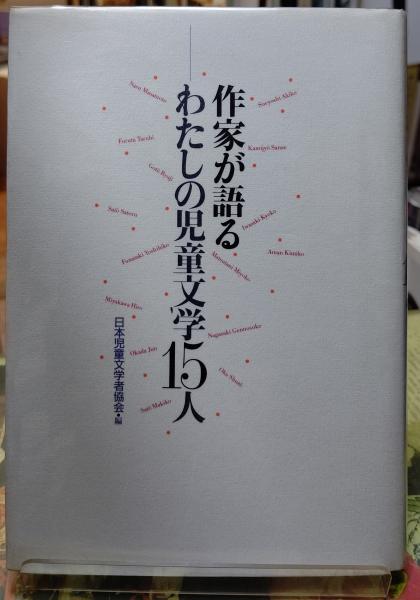 作家が語る
──わたしの児童文学15人
日本児童文学者協会・編
Sueyoshi Akiko
Kamijyō Sanae
Iwasaki Kyoko
Aman Kimiko
Furuta Taruhi
Gotō Ryuji
Satō Satoru
Funazaki Yoshihiko
Matsutani Miyoko
Miyakawa Hiro
Nagasaki Gennosuke
Okada Jun
Oka Shuzō
Satō Makiko